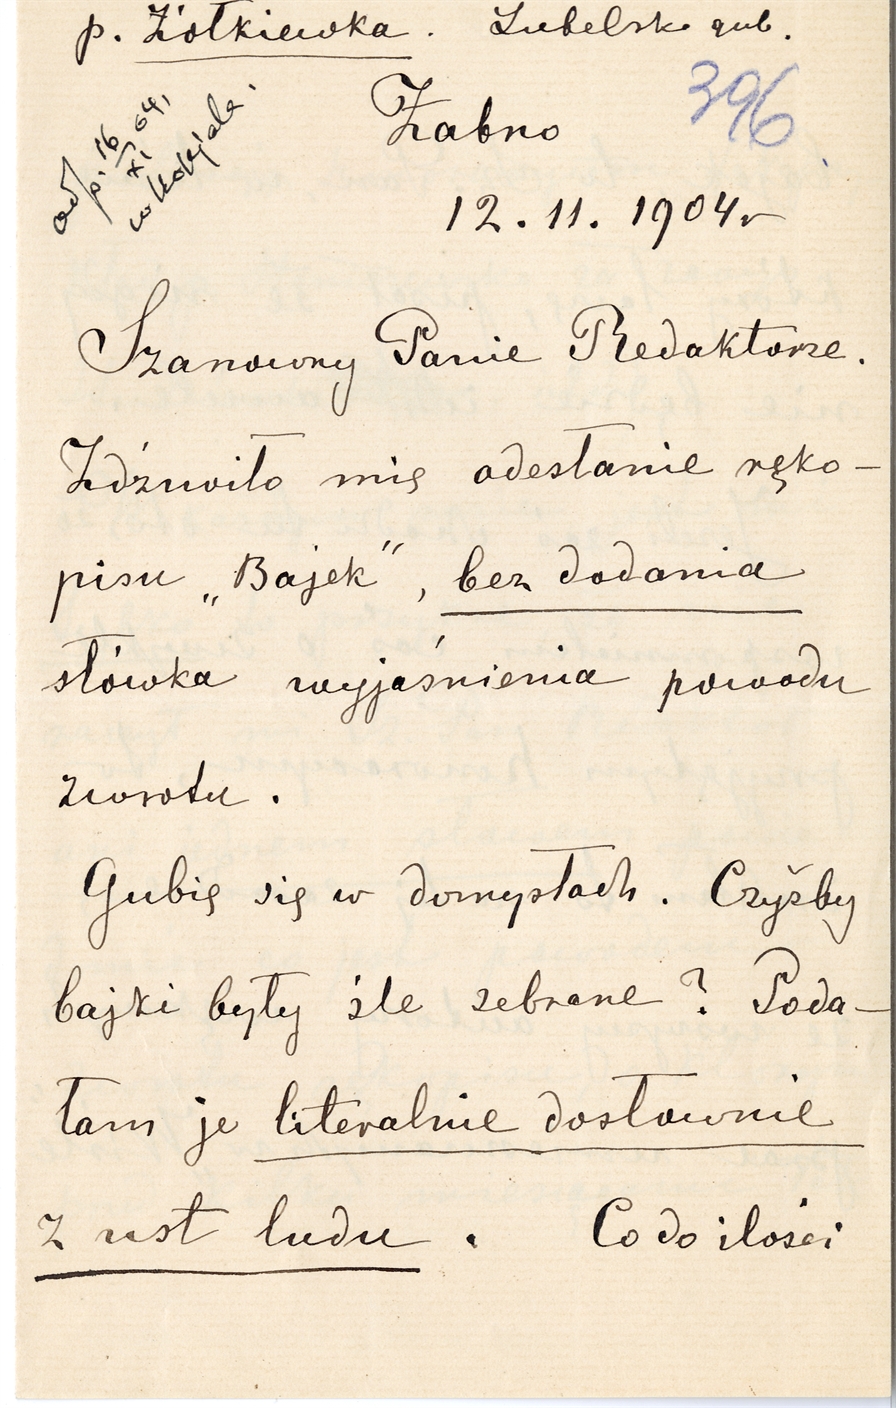 p. Żółkiewka. Lubelska gub.
Żabno
396
odp. 16/XI 04,
12. 11. 1904 r
Szanowny Panie Redaktorze.
Zdźiwiło mię odesłanie ręko-
pisu „Bajek”, bez dodania
słówka wyjaśnienia powodu
zwrotu.
Gubię się w domysłach. Czyżby
bajki były źle zebrane? Poda-
łam je literalnie dosłownie
z ust ludu. Co do ilości